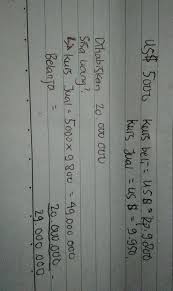 US$ 5000 kurs beli = US $ = Rp. 9.800
kurs jual = US $ = 9.950.
Dihabiskan 20 000 000
Sisa uang?
↳ kurs jual = 5000 x 9800 = 49.000 000
Belanja = 20.000.000 -
29 000 000